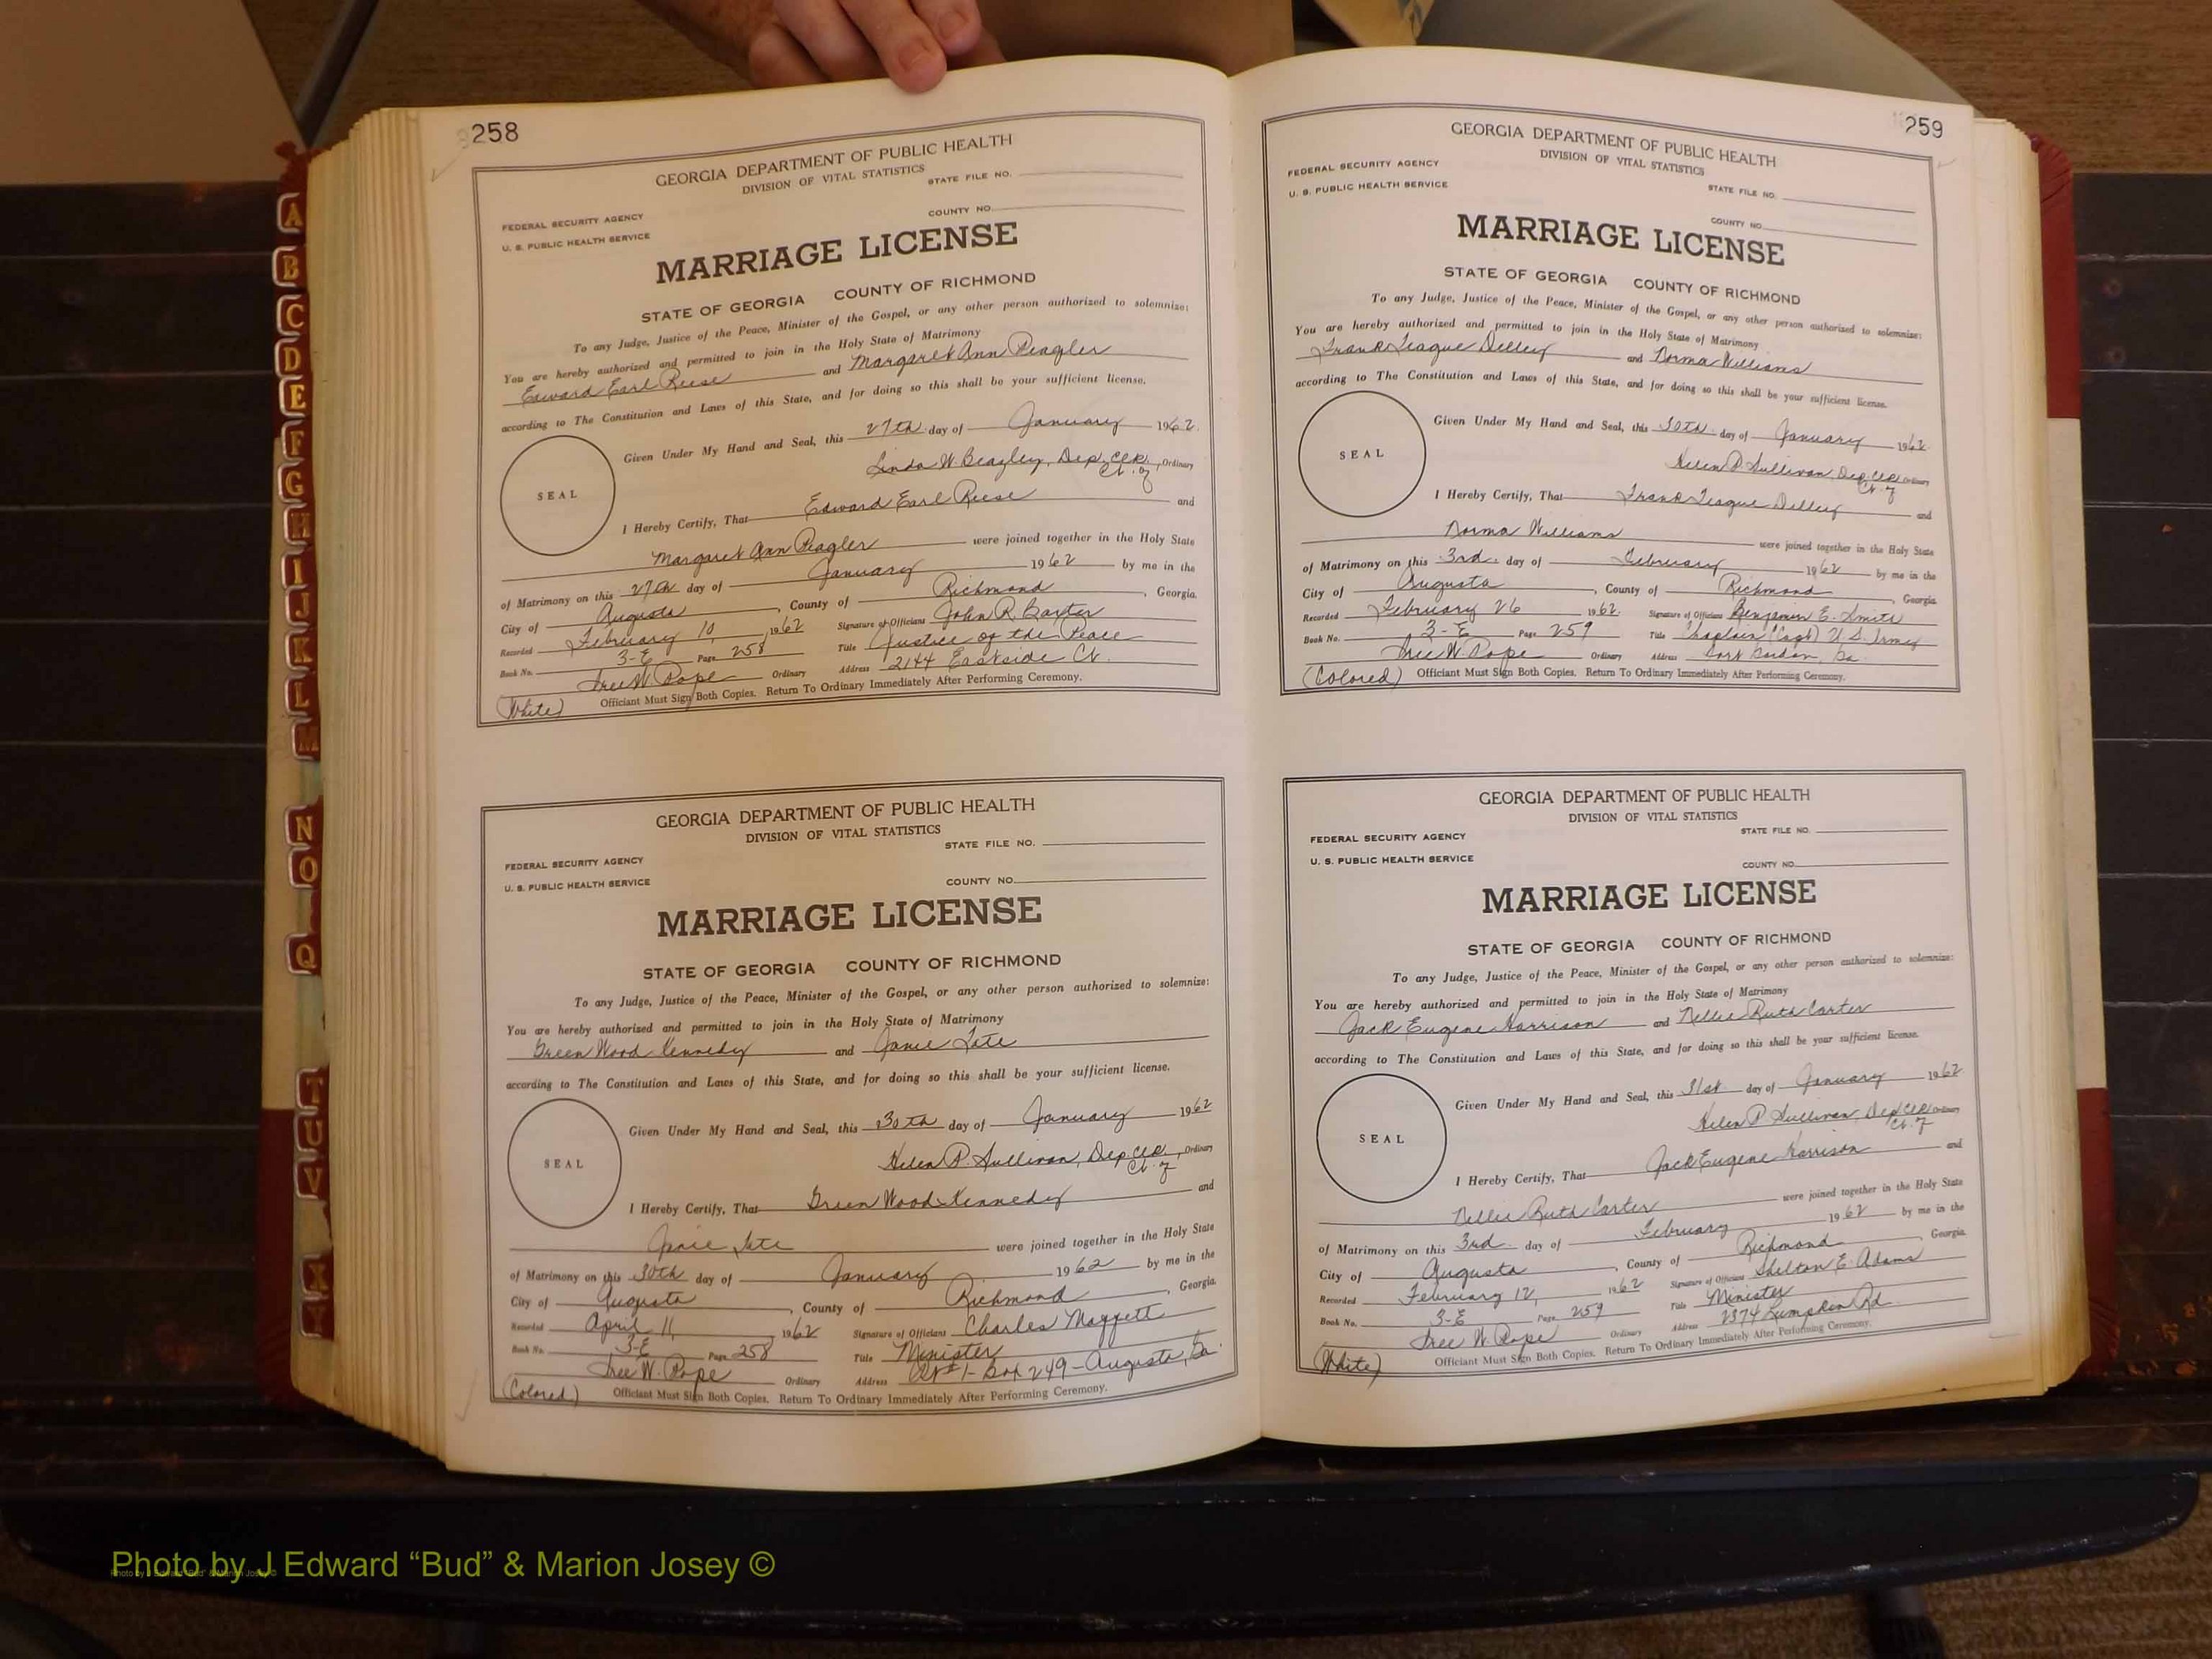 258
GEORGIA DEPARTMENT OF PUBLIC HEALTH
DIVISION OF VITAL STATISTICS
STATE FILE NO.
FEDERAL SECURITY AGENCY
COUNTY NO.
U. S. PUBLIC HEALTH SERVICE
MARRIAGE LICENSE
STATE OF GEORGIA COUNTY OF RICHMOND
To any Judge, Justice of the Peace, Minister of the Gospel, or any other person authorized to solemnize:
You are hereby authorized and permitted to join in the Holy State of Matrimony
Edward Earl Reese and Margaret Ann Peagler
according to The Constitution and Laws of this State, and for doing so this shall be your sufficient license.
Given Under My Hand and Seal, this 27th day of January 1962.
SEAL
Linda W. Beazley, Dep. Clk. Ct. of Ordinary
I Hereby Certify, That Edward Earl Reese and
Margaret Ann Peagler were joined together in the Holy State
of Matrimony on this 27th day of January 1962 by me in the
City of Augusta, County of Richmond, Georgia.
Recorded February 10, 1962 Signature of Officiant John R. Baxter
Book No. 3-E Page 258 Title Justice of the Peace
Ordinary Address 2144 Eastside Ct.
(White) Officiant Must Sign Both Copies. Return To Ordinary Immediately After Performing Ceremony.
GEORGIA DEPARTMENT OF PUBLIC HEALTH
DIVISION OF VITAL STATISTICS
STATE FILE NO.
FEDERAL SECURITY AGENCY
U. S. PUBLIC HEALTH SERVICE
COUNTY NO.
MARRIAGE LICENSE
STATE OF GEORGIA COUNTY OF RICHMOND
To any Judge, Justice of the Peace, Minister of the Gospel, or any other person authorized to solemnize:
You are hereby authorized and permitted to join in the Holy State of Matrimony
Green Wood Kennedy and Janie Tate
according to The Constitution and Laws of this State, and for doing so this shall be your sufficient license.
Given Under My Hand and Seal, this 30th day of January 1962
SEAL
Helen P. Sullivan, Dep. Clk. Ct. of Ordinary
I Hereby Certify, That Green Wood Kennedy and
Janie Tate were joined together in the Holy State
of Matrimony on this 30th day of January 1962 by me in the
City of Augusta, County of Richmond, Georgia.
Recorded April 11, 1962 Signature of Officiant Charles Maggett
Book No. 3-E Page 258 Title Minister
Ordinary Address Rt #1-Box 249-Augusta, Ga.
(Colored) Officiant Must Sign Both Copies. Return To Ordinary Immediately After Performing Ceremony.
259
GEORGIA DEPARTMENT OF PUBLIC HEALTH
DIVISION OF VITAL STATISTICS
FEDERAL SECURITY AGENCY
U. S. PUBLIC HEALTH SERVICE
STATE FILE NO.
COUNTY NO.
MARRIAGE LICENSE
STATE OF GEORGIA COUNTY OF RICHMOND
To any Judge, Justice of the Peace, Minister of the Gospel, or any other person authorized to solemnize:
You are hereby authorized and permitted to join in the Holy State of Matrimony
Frank Teague Dilley and Norma Williams
according to The Constitution and Laws of this State, and for doing so this shall be your sufficient license.
Given Under My Hand and Seal, this 30th day of January 1962
SEAL
Helen P. Sullivan, Dep. Clk. Ct. of Ordinary
I Hereby Certify, That Frank Teague Dilley and
Norma Williams were joined together in the Holy State
of Matrimony on this 3rd day of February 1962 by me in the
City of Augusta, County of Richmond, Georgia.
Recorded February 26 1962. Signature of Officiant Benjamin E. Smith
Book No. 3-E Page 259 Title Chaplain (Capt) U.S. Army
Ordinary Address Fort Gordon, Ga.
(Colored) Officiant Must Sign Both Copies. Return To Ordinary Immediately After Performing Ceremony.
GEORGIA DEPARTMENT OF PUBLIC HEALTH
DIVISION OF VITAL STATISTICS
STATE FILE NO.
FEDERAL SECURITY AGENCY
U. S. PUBLIC HEALTH SERVICE
COUNTY NO.
MARRIAGE LICENSE
STATE OF GEORGIA COUNTY OF RICHMOND
To any Judge, Justice of the Peace, Minister of the Gospel, or any other person authorized to solemnize:
You are hereby authorized and permitted to join in the Holy State of Matrimony
Jack Eugene Harrison and Nellie Ruth Carter
according to The Constitution and Laws of this State, and for doing so this shall be your sufficient license.
Given Under My Hand and Seal, this 31st day of January 1962
SEAL
Helen P. Sullivan, Dep. Clk. Ct. of Ordinary
I Hereby Certify, That Jack Eugene Harrison and
Nellie Ruth Carter were joined together in the Holy State
of Matrimony on this 3rd day of February 1962 by me in the
City of Augusta, County of Richmond, Georgia.
Recorded February 12, 1962 Signature of Officiant Shelton E. Adams
Book No. 3-E Page 259 Title Minister
Ordinary Address 2374 Lumpkin Rd.
(White) Officiant Must Sign Both Copies. Return To Ordinary Immediately After Performing Ceremony.
A
B
C
D
E
F
G
H
I
J
K
L
M
N
O
Q
T
U
V
X
Y
Photo by J Edward “Bud” & Marion Josey ©